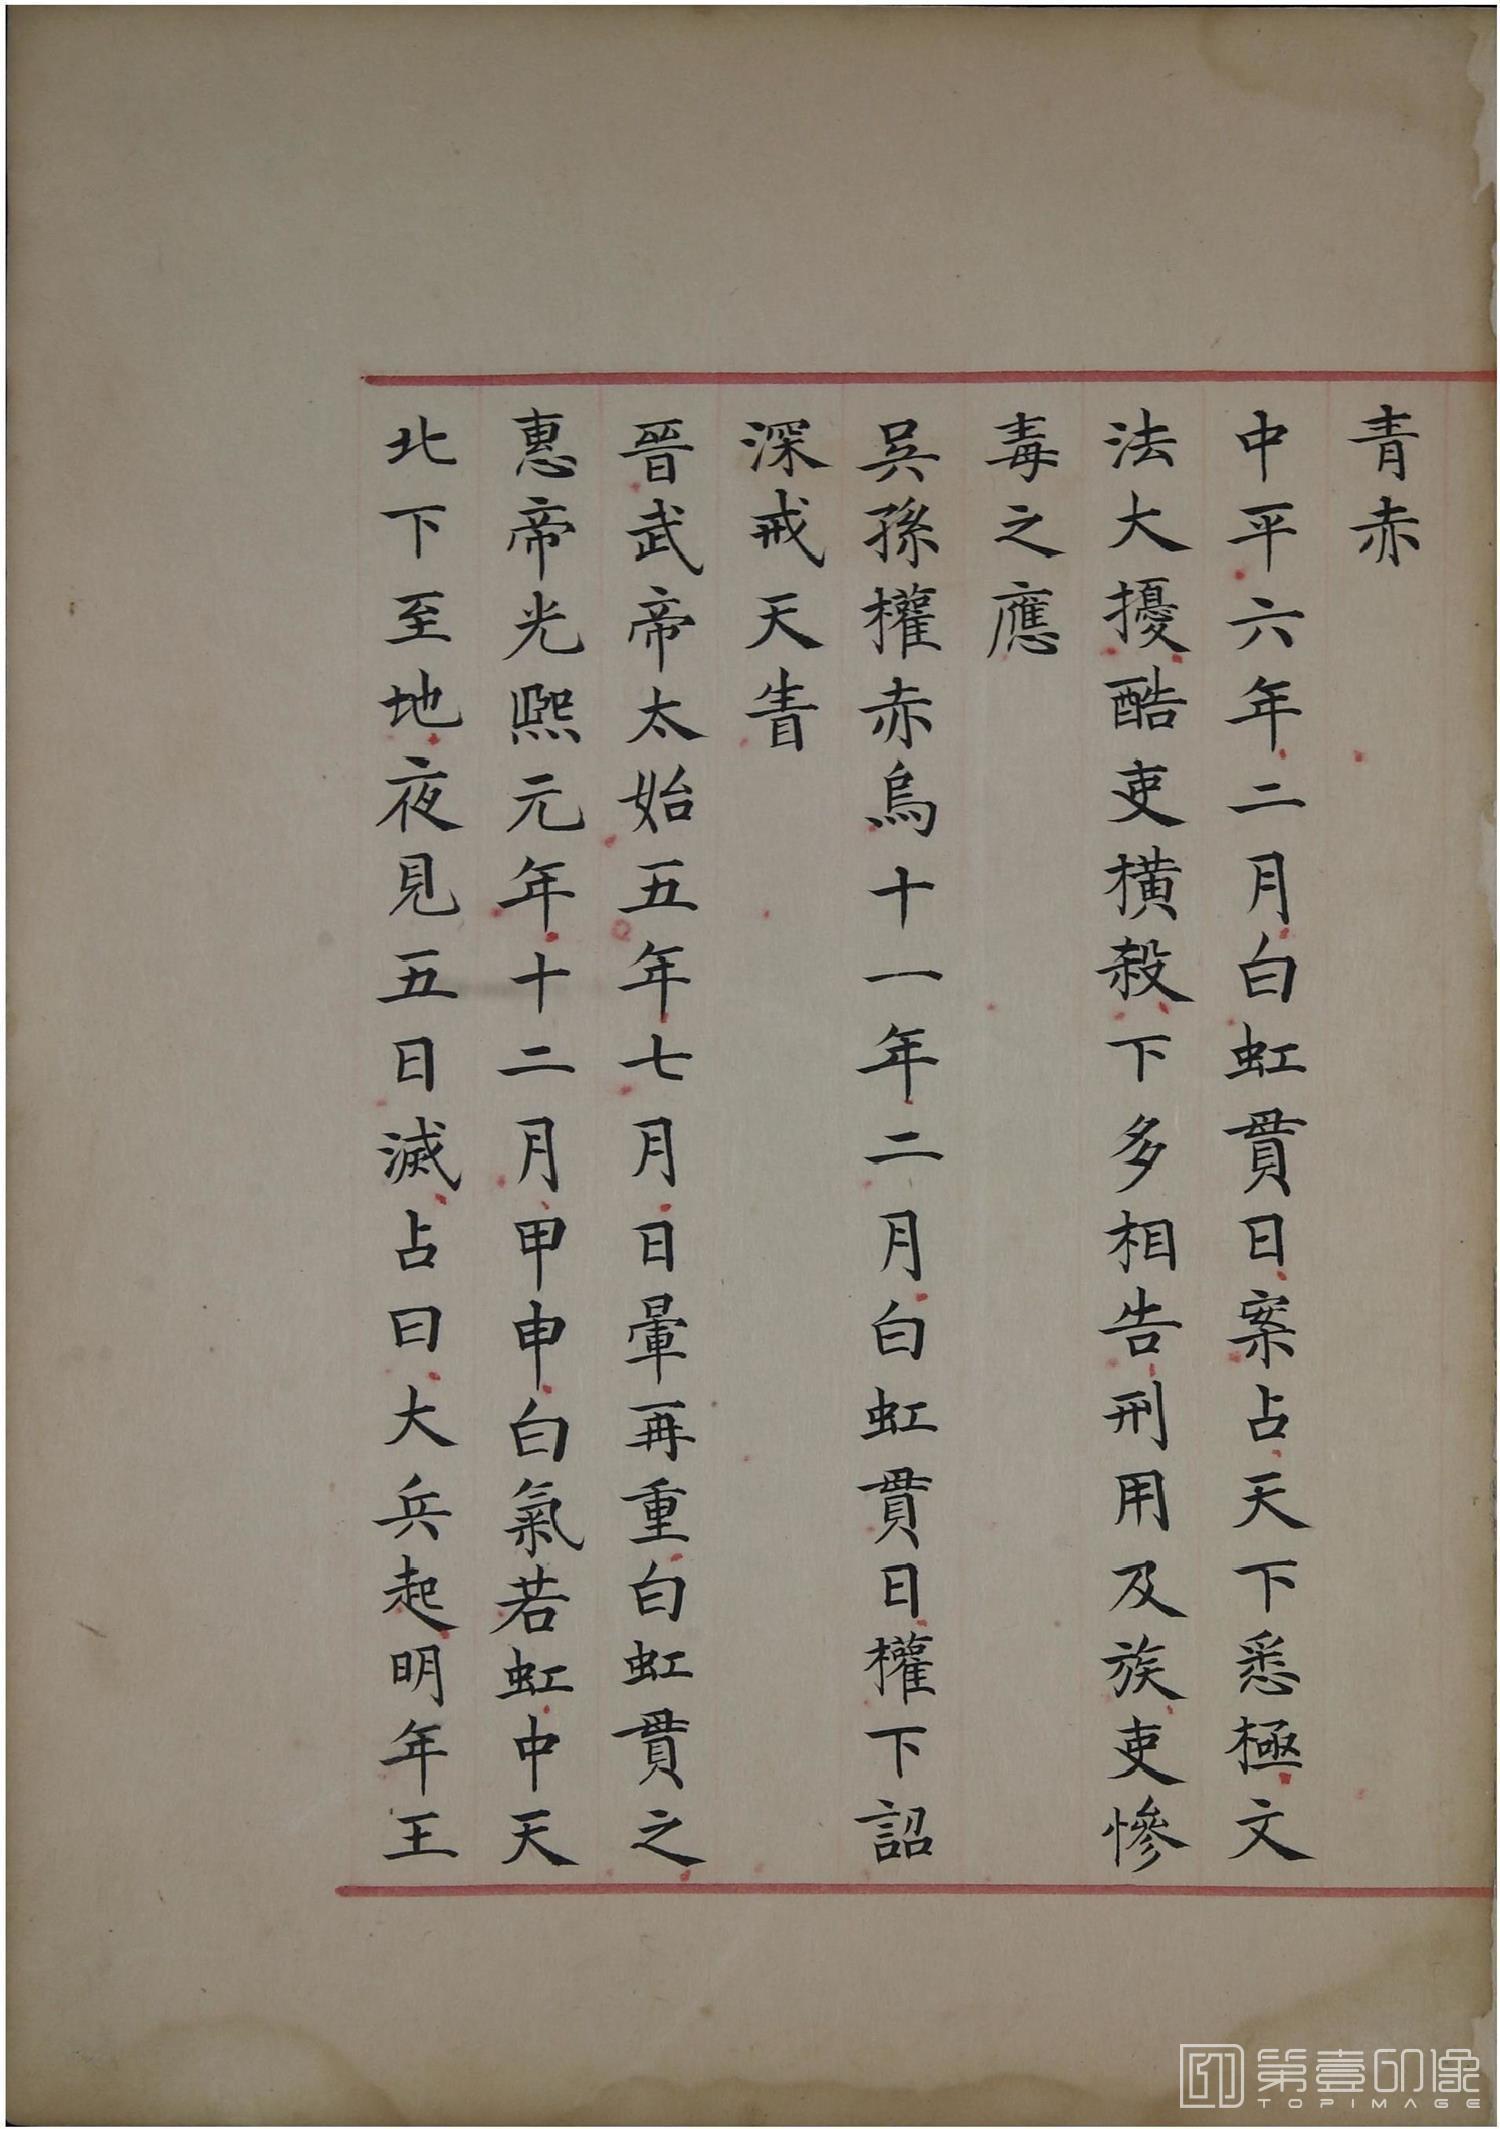 青赤
中平六年二月白虹貫日案占天下悉極文
法大擾酷吏橫殺下多相告刑用及族吏慘
毒之應
吳孫權赤烏十一年二月白虹貫日權下詔
深戒天眚
晉武帝太始五年七月日暈再重白虹貫之
惠帝光熙元年十二月甲申白氣若虹中天
北下至地夜見五日滅占曰大兵起明年王
第壹印像
TOPIMAGE